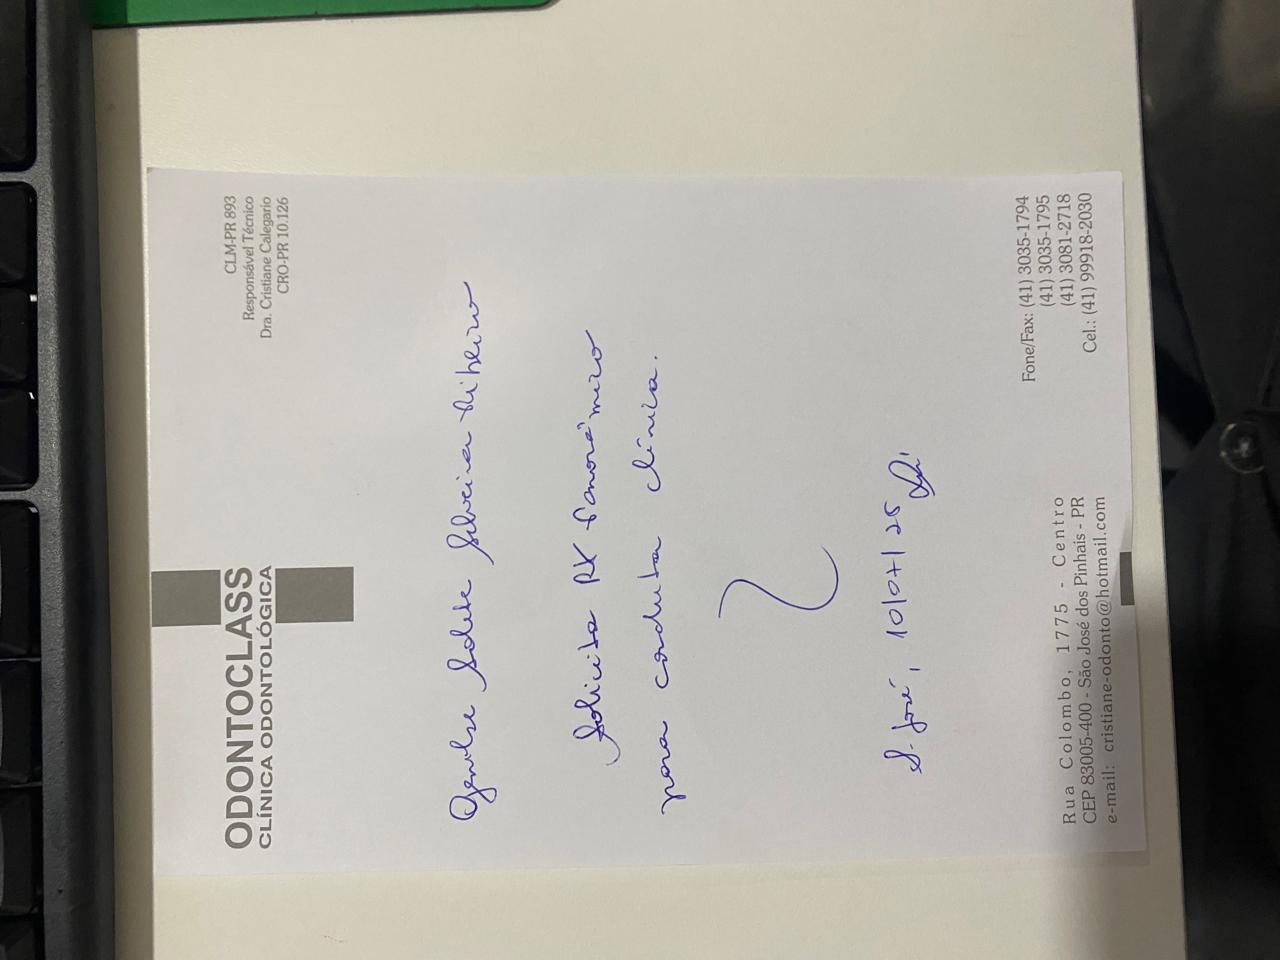 ODONTOCLASS
CLÍNICA ODONTOLÓGICA
CLM-PR 893
Responsável Técnico
Dra. Cristiane Calegario
CRO-PR 10.126
Silveira Ribeiro
Solicito RX Panorâmico
para conduta clínica.
S. José, 10/07/25
Rua Colombo, 1775 - Centro
CEP 83005-400 - São José dos Pinhais - PR
e-mail: cristiane-odonto@hotmail.com
Fone/Fax: (41) 3035-1794
(41) 3035-1795
(41) 3081-2718
Cel.: (41) 99918-2030